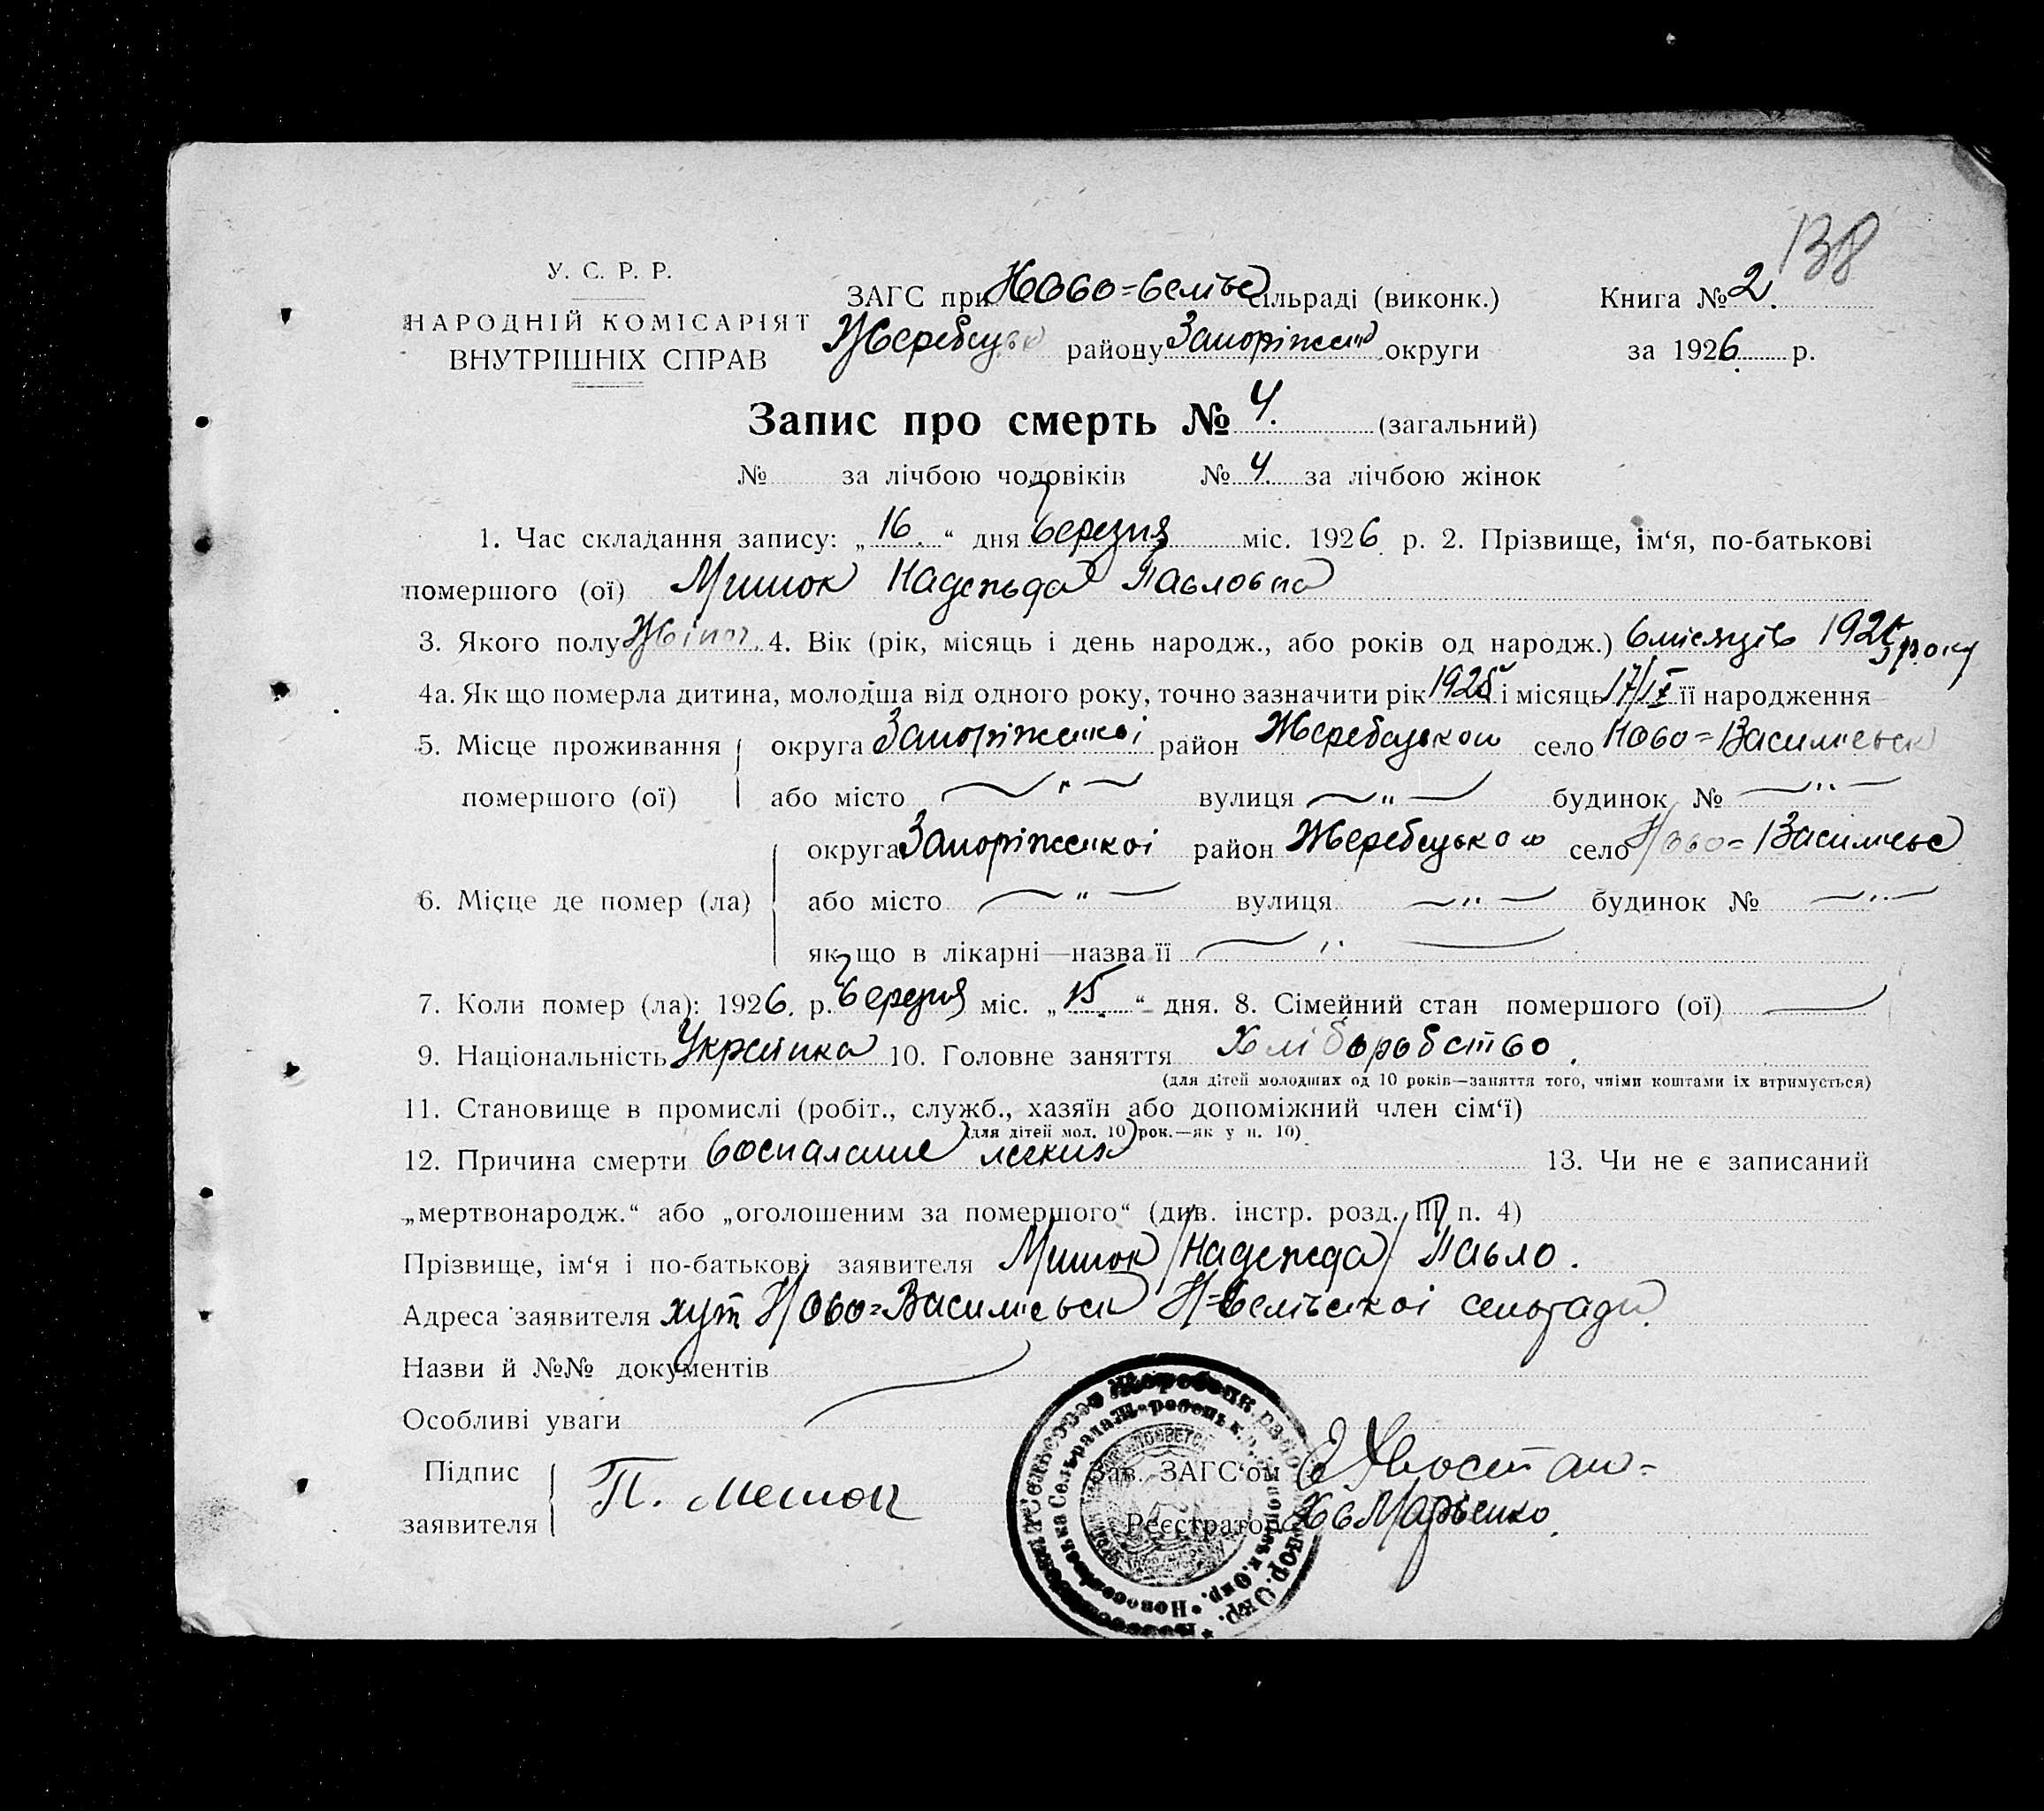 138
У. С. Р. Р.
НАРОДНІЙ КОМІСАРІЯТ
ВНУТРІШНІХ СПРАВ
ЗАГС при Ново= сільраді (виконк.)
Жеребецьк району Запоріжськ округи
Книга № 2.
за 1926 р.
Запис про смерть № 4. (загальний)
№ за лічбою чоловіків № 4. за лічбою жінок
1. Час складання запису: „16.“ дня березня міс. 1926 р. 2. Прізвище, ім‘я, по-батькові
помершого (ої) Мишок Надежда Павловна
3. Якого полу Жіноч. 4. Вік (рік, місяць і день народж., або років од народж.) 6 місяців 1925 року
4а. Як що померла дитина, молодша від одного року, точно зазначити рік 1925 і місяць 17/IX її народження
5. Місце проживання помершого (ої)
округа Запоріжської район Жеребецького село Ново=Васильевск
або місто —„— вулиця —„— будинок № —„—
6. Місце де помер (ла)
округа Запоріжської район Жеребецького село Ново=Васильевс
або місто —„— вулиця —„— будинок № —„—
як що в лікарні—назва її —„—
7. Коли помер (ла): 1926. р. березня міс. „15.“ дня. 8. Сімейний стан помершого (ої) —
9. Національність Українка 10. Головне заняття Хліборобство.
(для дітей молодших од 10 років—заняття того, чиїми коштами їх втримується)
11. Становище в промислі (робіт., служб., хазяїн або допоміжний член сім‘ї)
(для дітей мол. 10 рок.—як у п. 10)
12. Причина смерти воспаление легких 13. Чи не є записаний
„мертвонародж.“ або „оголошеним за помершого“ (див. інстр. розд. III п. 4)
Прізвище, ім‘я і по-батькові заявителя Мишок /Надежда/ Павло.
Адреса заявителя хут Ново=Васильевск сельради.
Назви й №№ документів
Особливі уваги
Підпис заявителя П. Мешок
Зав. ЗАГС‘ом
Реєстратор